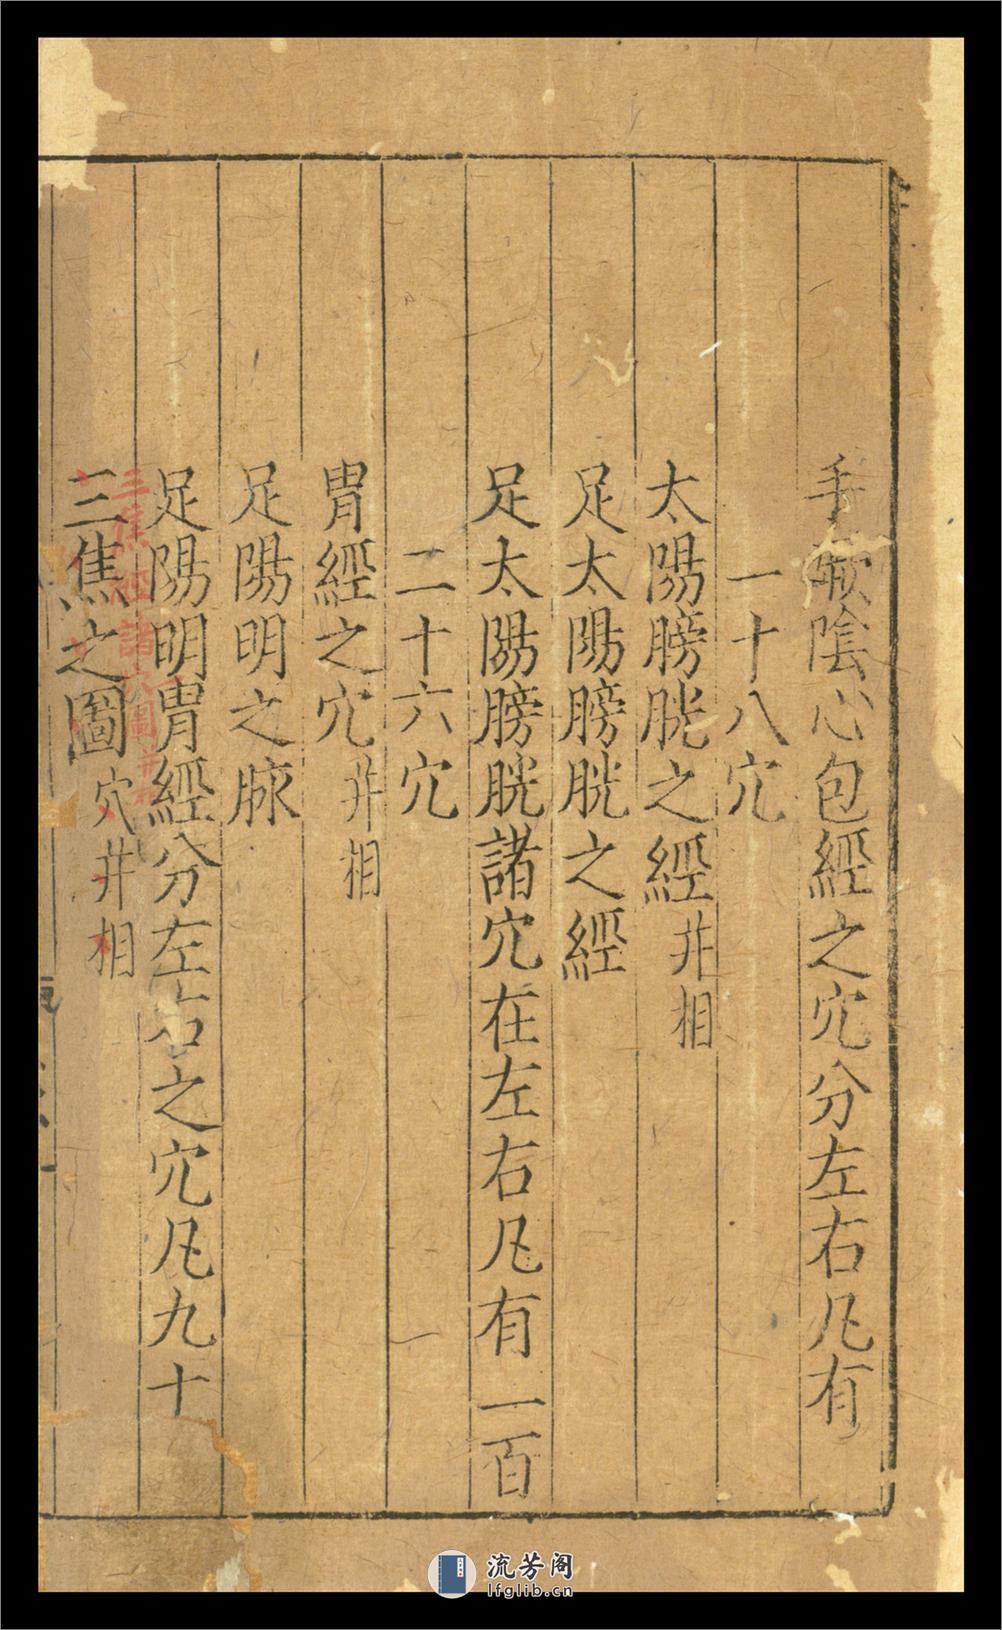 手厥陰心包經之穴分左右凡有
一十八穴
太陽膀胱之經并相
足太陽膀胱之經
足太陽膀胱諸穴在左右凡有一百
二十六穴
胃經之穴并相
足陽明之脉
足陽明胃經分左右之穴凡九十
三焦經諸穴圖并相
三焦之圖穴并相
流芳阁
lfglib.cn